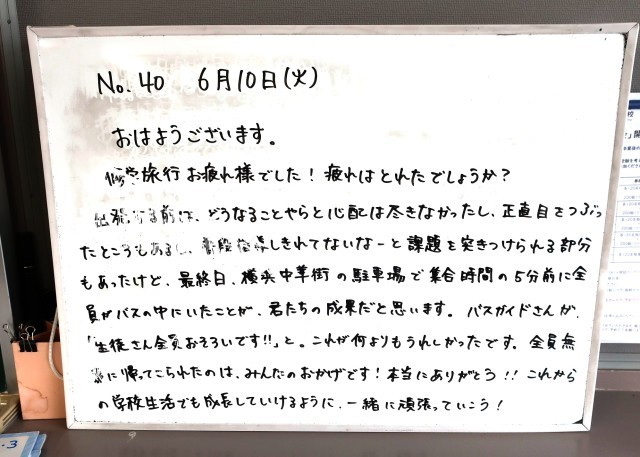 No. 40 6月10日(火)
おはようございます。
修学旅行 お疲れ様でした！疲れはとれたでしょうか？
出発する前は、どうなることやらと心配は尽きなかったし、正直目をつぶっ
たところもある し、 しきれてないなーと課題を突きつけられる部分
もあったけど、最終日、横浜中華街の駐車場で集合時間の5分前に全
員がバスの中にいたことが、君たちの成果だと思います。バスガイドさんが、
「生徒さん全員おそろいです!!」と。これが何よりもうれしかったです。全員無
事に帰ってこられたのは、みんなのおかげです！本当にありがとう!!これから
の学校生活でも成長していけるように、一緒に頑張っていこう！
校